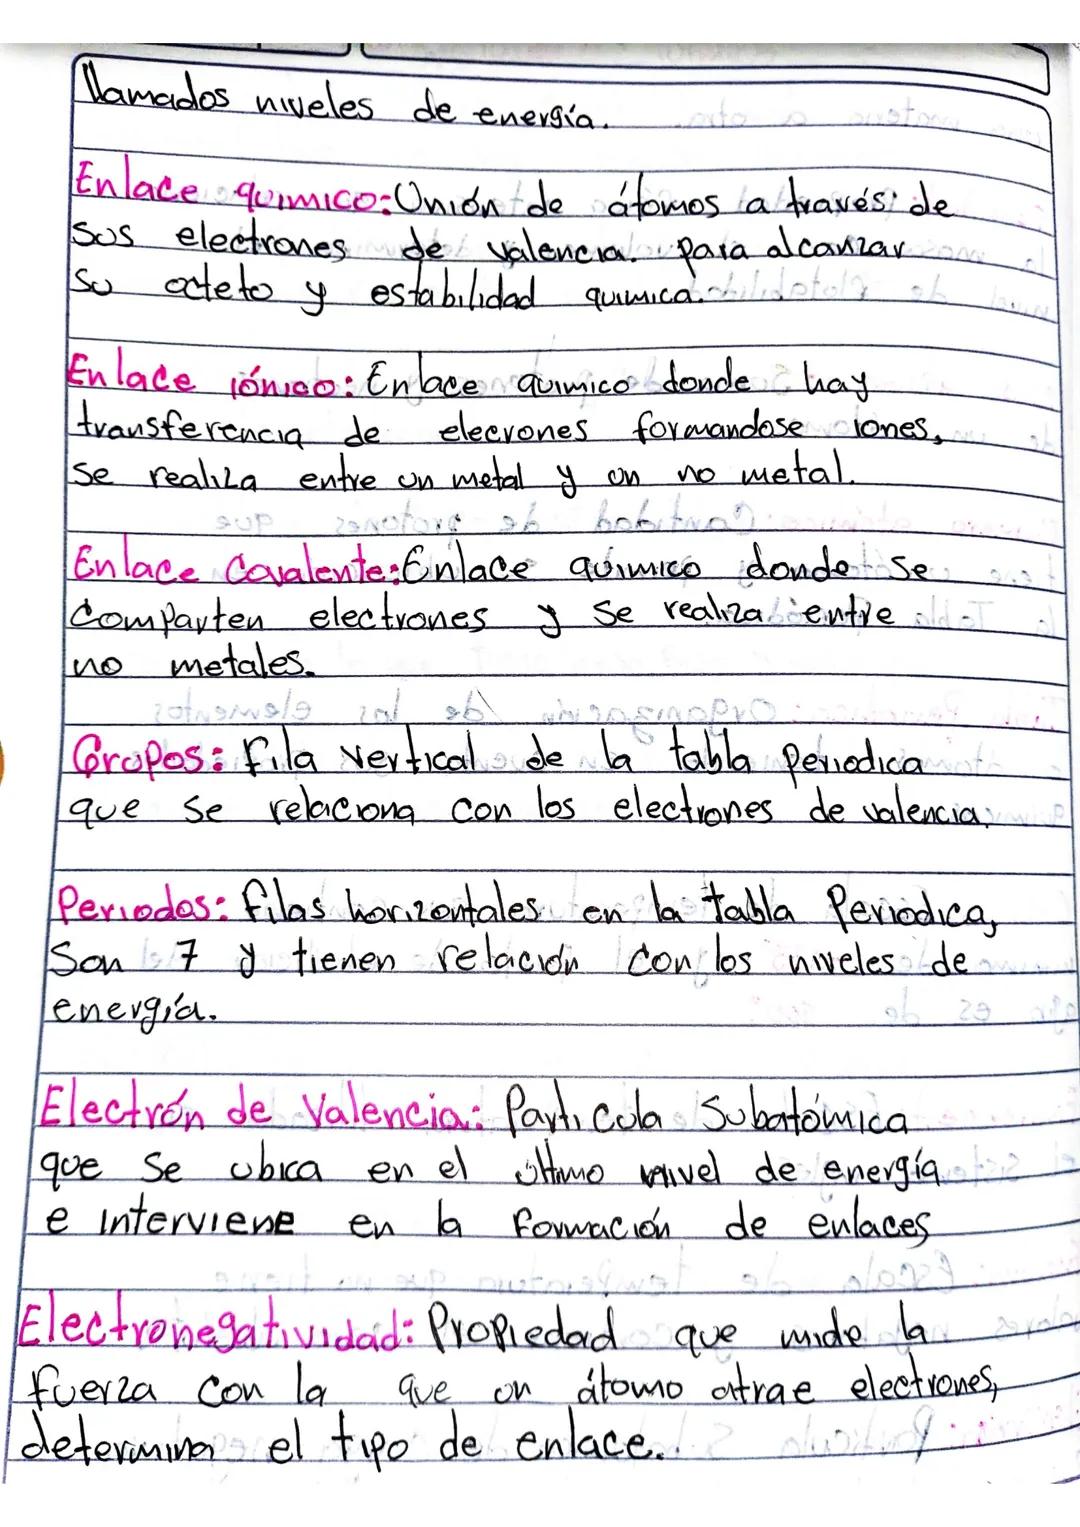 llamados niveles de energía.
Enlace químico: Unión de átomos a través de
sus electrones de valencia. para alcanzar
su octeto y estabilidad química.
Enlace iónico: Enlace químico donde hay
transferencia de elecrones formandose iones,
se realiza entre un metal y un no metal.
Enlace Covalente: Enlace químico donde se
Comparten electrones y se realiza entre
no metales.
Grupos: Fila vertical de la tabla periodica
que se relaciona con los electrones de valencia.
Periodos: filas horizontales en la tabla Periodica,
Son 7 y tienen relación con los niveles de
energía.
Electrón de Valencia: Particula Subatómica
que se ubica en el último nivel de energía
e interviene en la formación de enlaces
Electronegatividad: Propiedad que mide la
fuerza con la que un átomo atrae electrones,
determina el tipo de enlace.